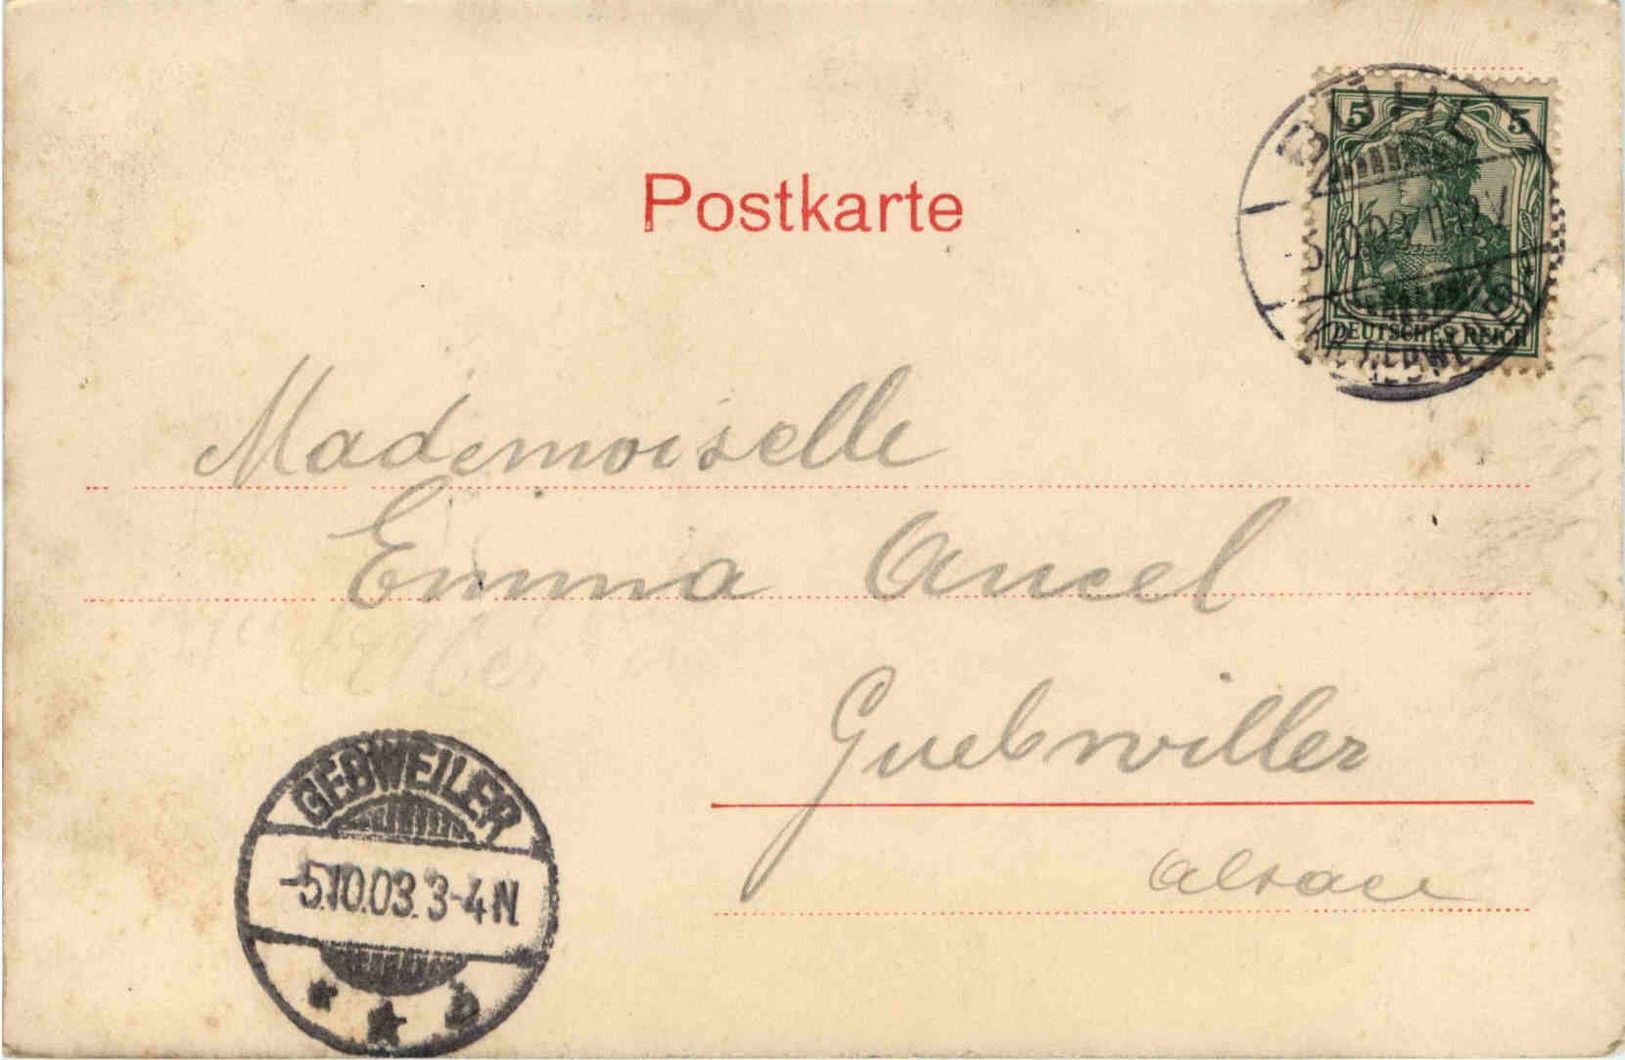 Postkarte
5 5
BÜHL
5.10.03 11-12 V
DEUTSCHES REICH
Mademoiselle
Emma Ancel
Guebwiller
Alsace
GEBWEILER
-5.10.03. 3-4 N.
* * b